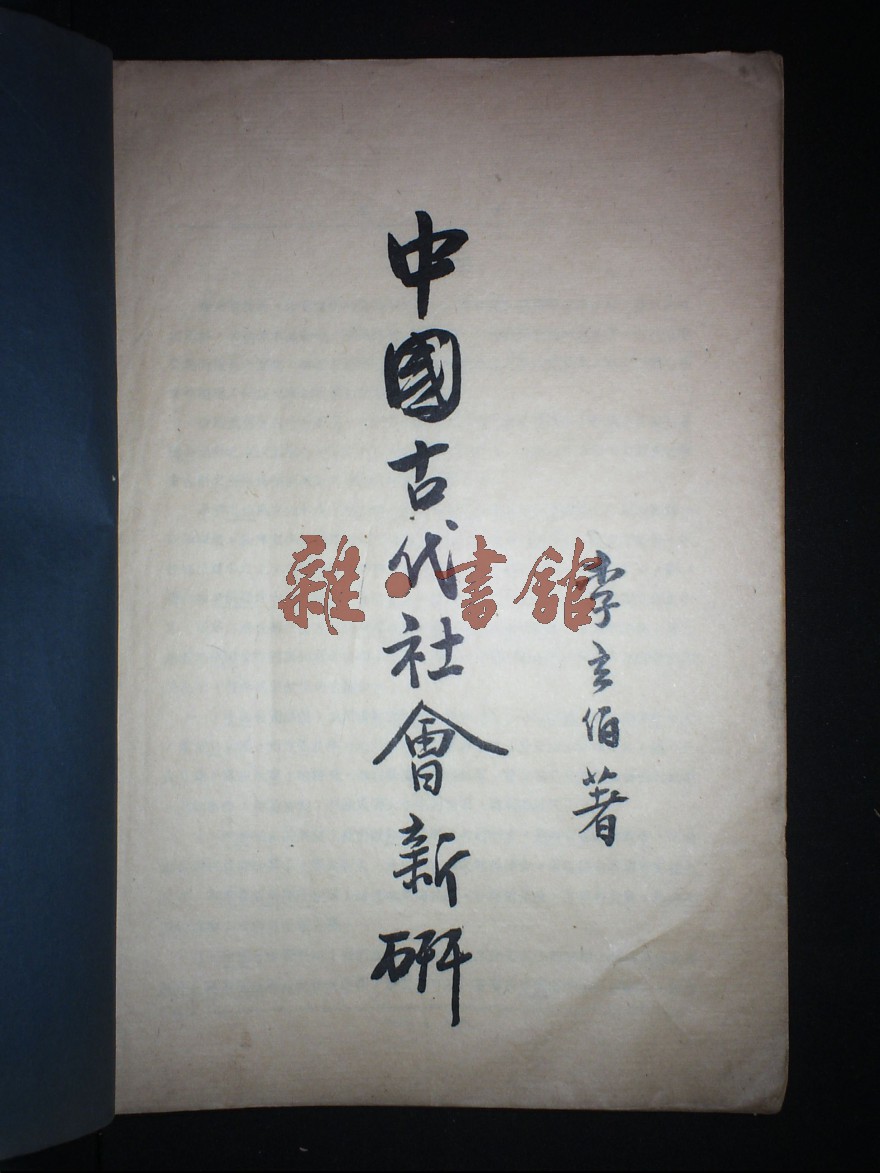 李玄伯著
中國古代社會新研
雜·書館